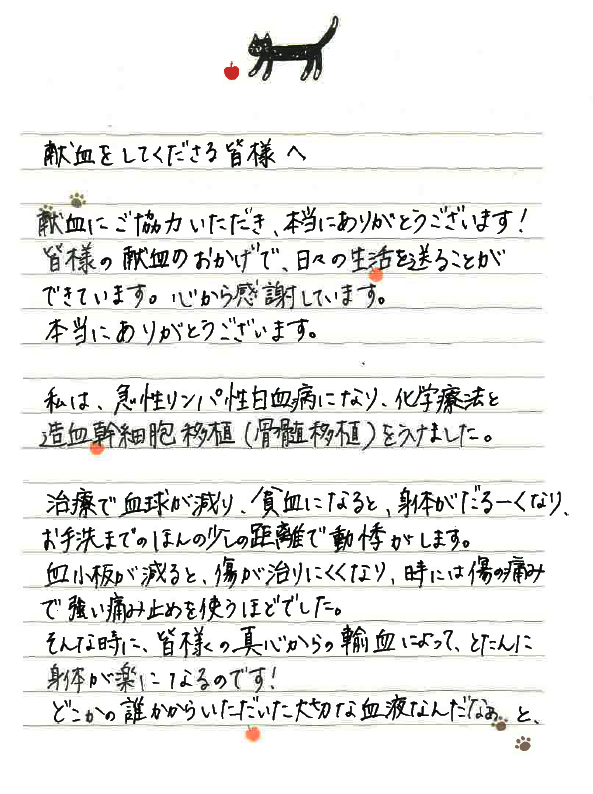 献血をしてくださる皆様へ
献血にご協力いただき、本当にありがとうございます!
皆様の献血のおかげで、日々の生活を送ることが
できています。心から感謝しています。
本当にありがとうございます。
私は、急性リンパ性白血病になり、化学療法と
造血幹細胞移植(骨髄移植)をうけました。
治療で血球が減り、貧血になると、身体がだるーくなり、
お手洗までのほんの少しの距離で動悸がします。
血小板が減ると、傷が治りにくくなり、時には傷の痛み
で強い痛み止めを使うほどでした。
そんな時に、皆様の真心からの輸血によって、とたんに
身体が楽になるのです!
どこかの誰かからいただいた大切な血液なんだなぁと、